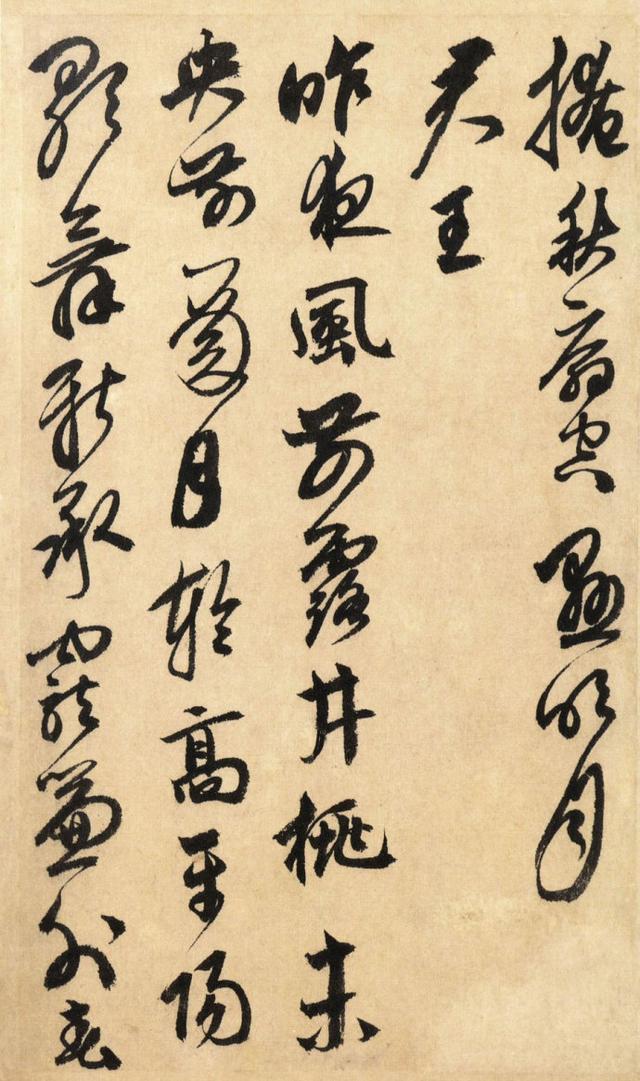 掩秋扇空懸明月
君王
昨夜風前露井桃未
央前殿月輪高平陽
歌舞新承寵簾外春